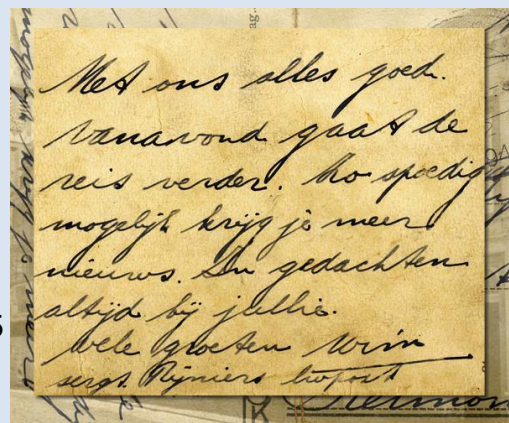 Met ons alles goed.
Vanavond gaat de
reis verder. Zo spoedig
mogelijk krijg je meer
nieuws. In gedachten
altijd bij jullie.
vele groeten Wim
sergt. Rijniers